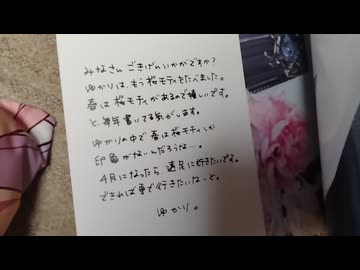 みなさん ごきげんいかがですか?
ゆかりは、もう桜モティをたべました。
春は桜モティがあるので嬉しいです。
と毎年書いてる気がします。
ゆかりの中で春は桜モティしか
印象がないんだろうな…。
4月になったら、遠足に行きたいです。
できれば車で行きたいな、と。
ゆかり。